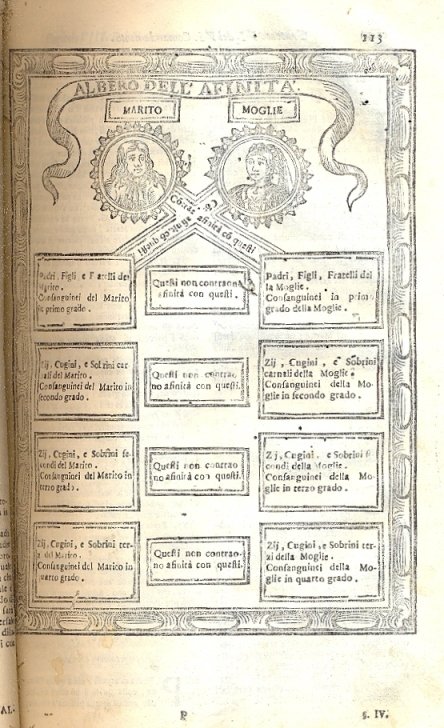 113
ALBERO DELL' AFINITÀ.
MARITO
MOGLIE
afinità có questi
Padri, Figli e Fratelli del
Marito.
Consanguinei del Marito
in primo grado.
Questi non contraono
afinità con questi.
Padri, Figli, Fratelli del
la Moglie.
Consanguinei in primo
grado della Moglie.
Zij, Cugini, e Sobrini car
nali del Marito.
Consanguinei del Marito in
secondo grado.
Questi non contrao-
no afinità con questi.
Zij, Cugini, e Sobrini
carnali della Moglie.
Consanguinei della Mo-
glie in secondo grado.
Zij, Cugini, e Sobrini se-
condi del Marito.
Consanguinei del Marito in
terzo grado.
Questi non contrao-
no afinità con questi.
Zij, Cugini, e Sobrini se
condi della Moglie.
Consanguinei della Mo-
glie in terzo grado.
Zij, Cugini, e Sobrini ter-
zi del Marito.
Consanguinei del Marito in
quarto grado.
Questi non contrao-
no afinità con questi.
Zij, Cugini, e Sobrini ter-
zi della Moglie.
Consanguinei della Mo-
glie in quarto grado.
P
§. IV.